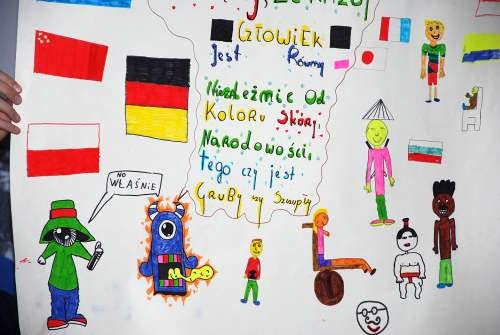 CZŁOWiEK
jest Równy
Niezależnie Od
KOLORU Skóry,
NARODOWOŚCi,
tego czy jest
GRUBY czy Szczupły
NO
WŁAŚNiE